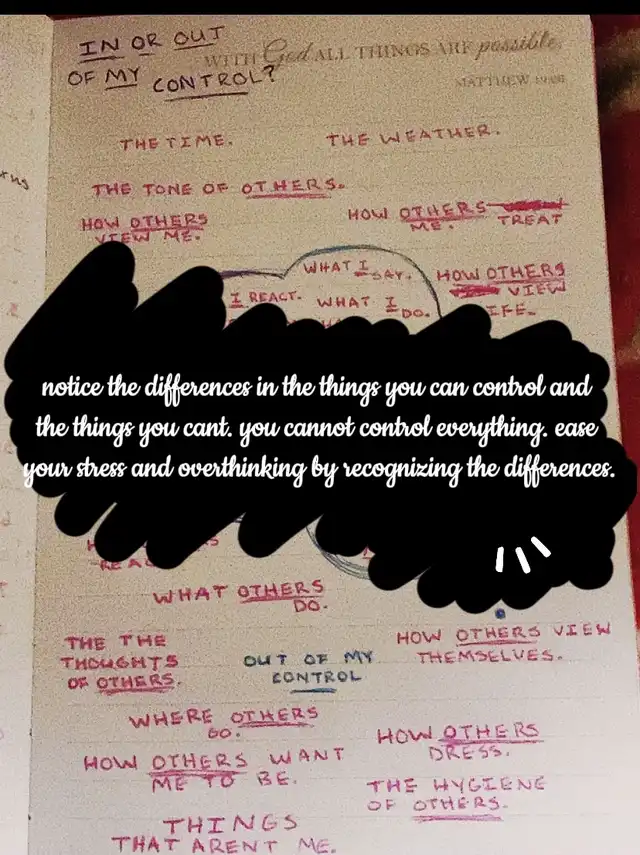 IN OR OUT
OF MY CONTROL?
WITH God ALL THINGS ARE possible.
MATTHEW 19:26
THE TIME.
THE WEATHER.
THE TONE OF OTHERS.
HOW OTHERS
VIEW ME.
HOW OTHERS
TREAT
ME.
WHAT I SAY.
I REACT.
WHAT I DO.
HOW OTHERS
VIEW
notice the differences in the things you can control and
the things you cant. you cannot control everything. ease
your stress and overthinking by recognizing the differences.
WHAT OTHERS
DO.
THE THE
THOUGHTS
OF OTHERS.
OUT OF MY
CONTROL
HOW OTHERS VIEW
THEMSELVES.
WHERE OTHERS
GO.
HOW OTHERS
DRESS.
HOW OTHERS WANT
ME TO BE.
THE HYGIENE
OF OTHERS.
THINGS
THAT ARENT ME.